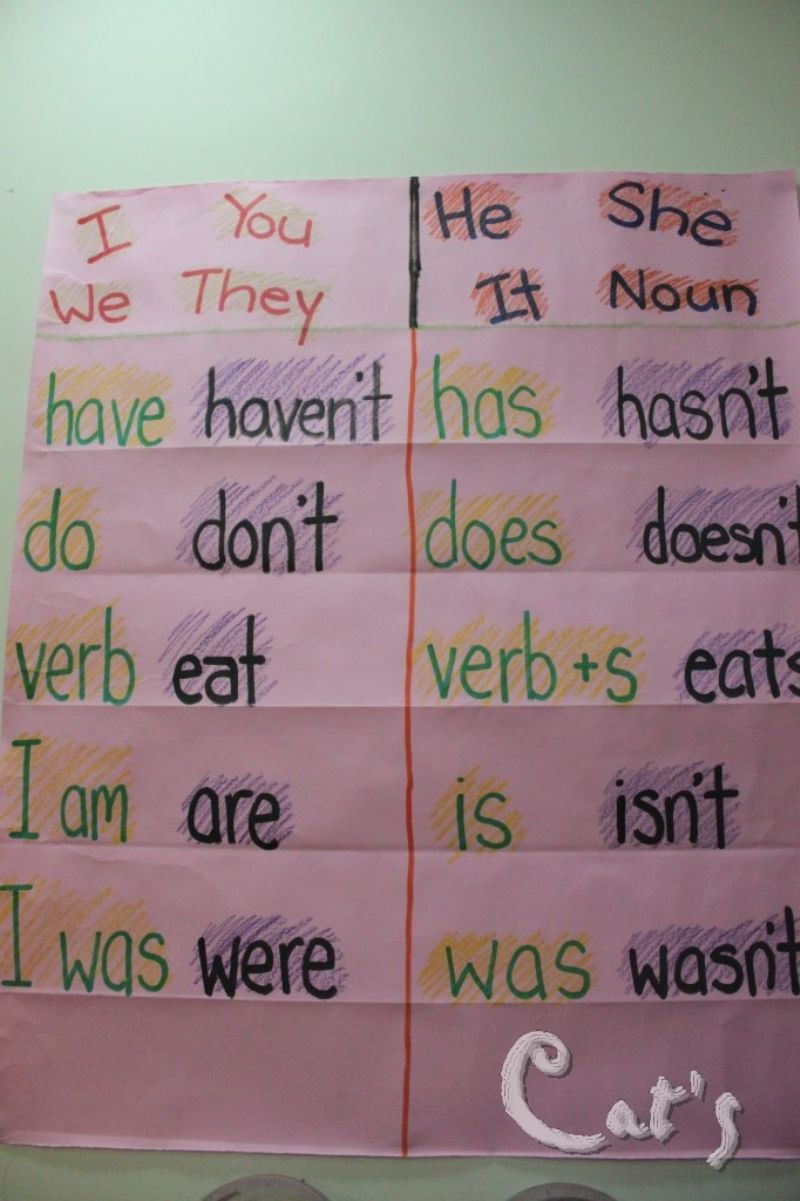 I You He She
We They It Noun
have haven't has hasn't
do don't does doesn't
verb eat verb+s eats
I am are is isn't
I was were was wasn't
Cat's